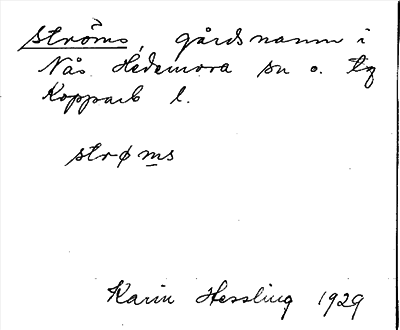 Ströms, gårdsnamn i
Nås Hedemora sn o. tg
Kopparb l.
strøms
Karin Hessling 1929